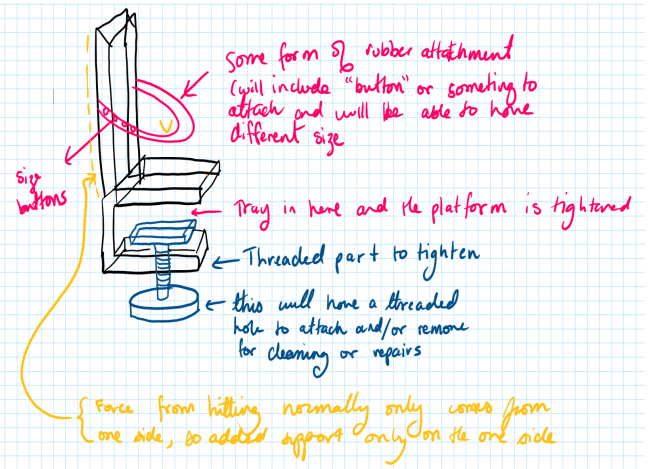 some form of rubber attachment
(will include "button" or someting to
attach and will be able to have
different size
size
buttons
Tray in here and the platform is tightened
Threaded part to tighten
this will have a threaded
hole to attach and/or remove
for cleaning or repairs
{Force from hitting normally only comes from
one side, so added support only on the one side